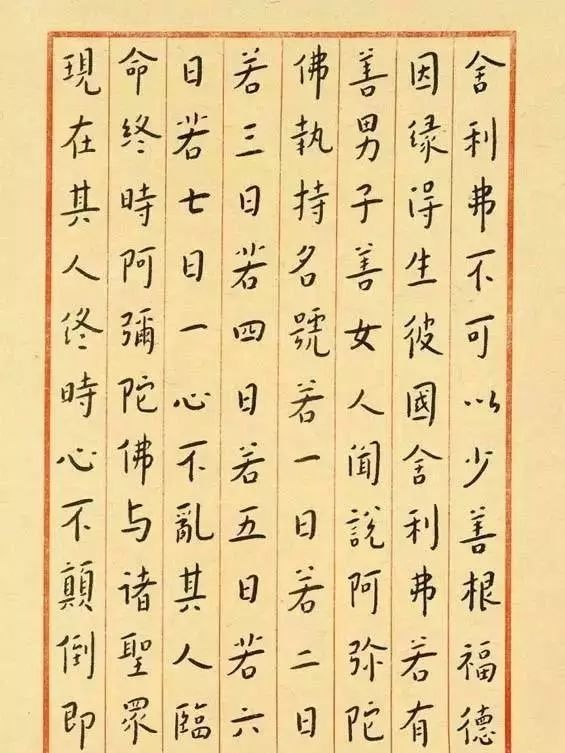 舍利弗不可以少善根福德
因缘得生彼國舍利弗若有
善男子善女人聞説阿弥陀
佛執持名號若一日若二日
若三日若四日若五日若六
日若七日一心不亂其人臨
命終時阿彌陀佛与諸聖眾
現在其人终時心不顛倒即